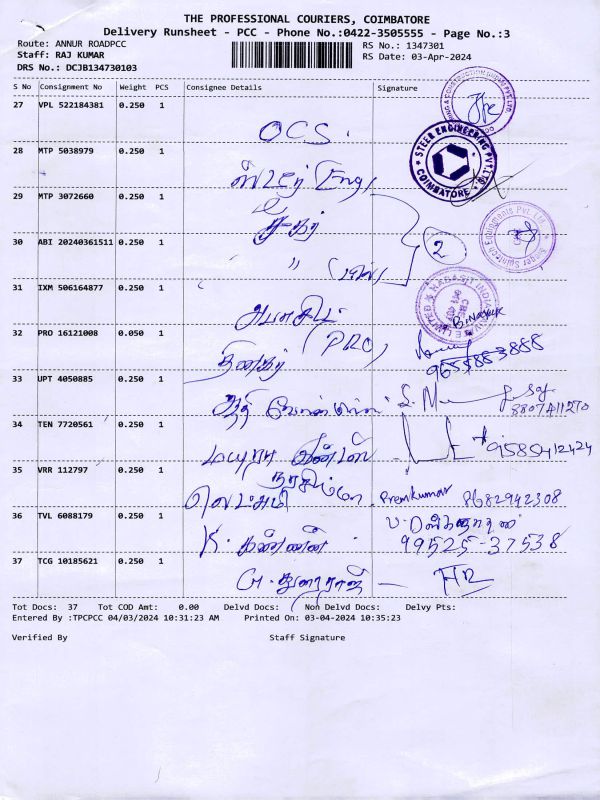 THE PROFESSIONAL COURIERS, COIMBATORE
Delivery Runsheet - PCC - Phone No.:0422-3505555 - Page No.:3
Route: ANNUR ROADPCC RS No.: 1347301
Staff: RAJ KUMAR RS Date: 03-Apr-2024
DRS No.: DCJB134730103
S No Consignment No Weight PCS Consignee Details Signature
27 VPL 522184381 0.250 1
OCS.
28 MTP 5038979 0.250 1
STEER ENGINEERING PVT.LTD. COIMBATORE
ஸ்டீர் (Eng)
29 MTP 3072660 0.250 1
30 ABI 20240361511 0.250 1
2
"
31 IXM 506164877 0.250 1
B.Nayak
32 PRO 16121008 0.050 1
(PRO)
தினகர்
9655883888
33 UPT 4050885 0.250 1
8807411270
34 TEN 7720561 0.250 1
9585412424
35 VRR 112797 0.250 1
லெட்சுமி
Premkumar 8682942308
36 TVL 6088179 0.250 1
K. கண்ணன்
99525-37538
37 TCG 10185621 0.250 1
துரைராஜ் — HR
Tot Docs: 37 Tot COD Amt: 0.00 Delvd Docs: Non Delvd Docs: Delvy Pts:
Entered By :TPCPCC 04/03/2024 10:31:23 AM Printed On: 03-04-2024 10:35:23
Verified By Staff Signature